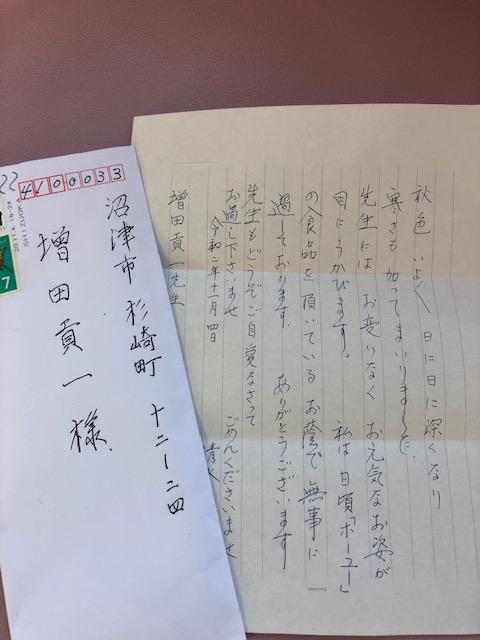 秋色 いよ〱 日に日に深くなり
寒さも 加ってまいりました
先生には お変りなく お元気なお姿が
目にうかびます。 私は 日頃「ポーユー」
の食品を頂いている お蔭で 無事に
過しております。 ありがとうございます
先生も どうぞ ご自愛なさって
お過し下さいませ ごめんくださいませ
令和二年十一月四日
増田貢一先生
4100033
沼津市 杉崎町 十二ー二四
増田貢一様